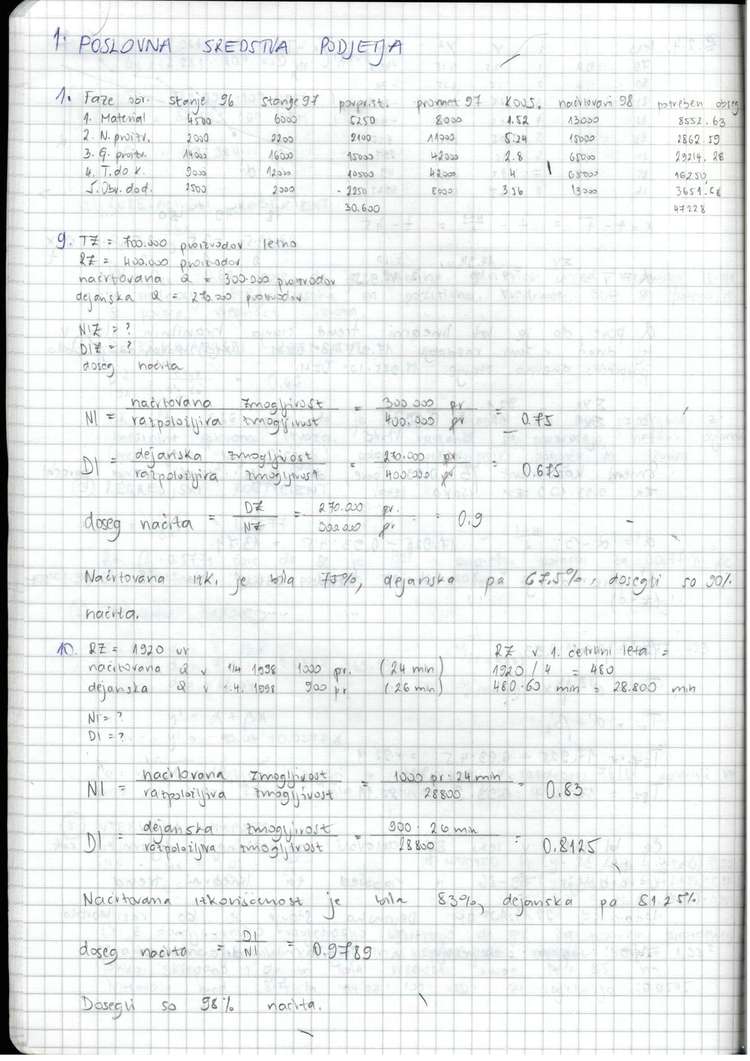 1. POSLOVNA SREDSTVA PODJETJA
1. Faze obr. stanje 96 stanje 97 povpr.st. promet 97 KOUS. načrtovani 98 potreben obseg
1. Material 4500 6000 5250 8000 1.52 13000 8552.63
2. N. proizv. 2000 2200 2100 11000 5.24 15000 2862.59
3. G. proizv. 14000 16000 15000 42000 2.8 65000 29214.28
4. T. do k. 9000 12000 10500 42000 4 65000 16250
5. Obv. dod. 2500 2000 2250 8000 3.56 13000 3651.68
30.600 47228
9. TZ = 700.000 proizvodov letno
RZ = 400.000 proizvodov
načrtovana Q = 300.000 proizvodov
dejanska Q = 270.000 proizvodov
NIZ = ?
DIZ = ?
doseg načrta
NI = načrtovana zmogljivost / razpoložljiva zmogljivost = 300.000 pr / 400.000 pr = 0.75
DI = dejanska zmogljivost / razpoložljiva zmogljivost = 270.000 pr / 400.000 pr = 0.675
doseg načrta = DZ / NZ = 270.000 pr. / 300.000 pr = 0,9
Načrtovana izk. je bila 75%, dejanska pa 67,5%, dosegli so 90%
načrta.
10. RZ = 1920 ur RZ v 1. četrtini leta =
načrtovana Q v 1/4 1998 1000 pr. (24 min) 1920 / 4 = 480
dejanska Q v 1.4. 1998 900 pr (26 min) 480.60 min = 28.800 min
NI = ?
DI = ?
NI = načrtovana zmogljivost / razpoložljiva zmogljivost = 1000 pr. 24 min / 28800 = 0.83
DI = dejanska zmogljivost / razpoložljiva zmogljivost = 900 . 26 min / 28800 = 0.8125
Načrtovana izkoriščenost je bila 83%, dejanska pa 81.25%
doseg načrta = DI / NI = 0.9789
Dosegli so 98% načrta.